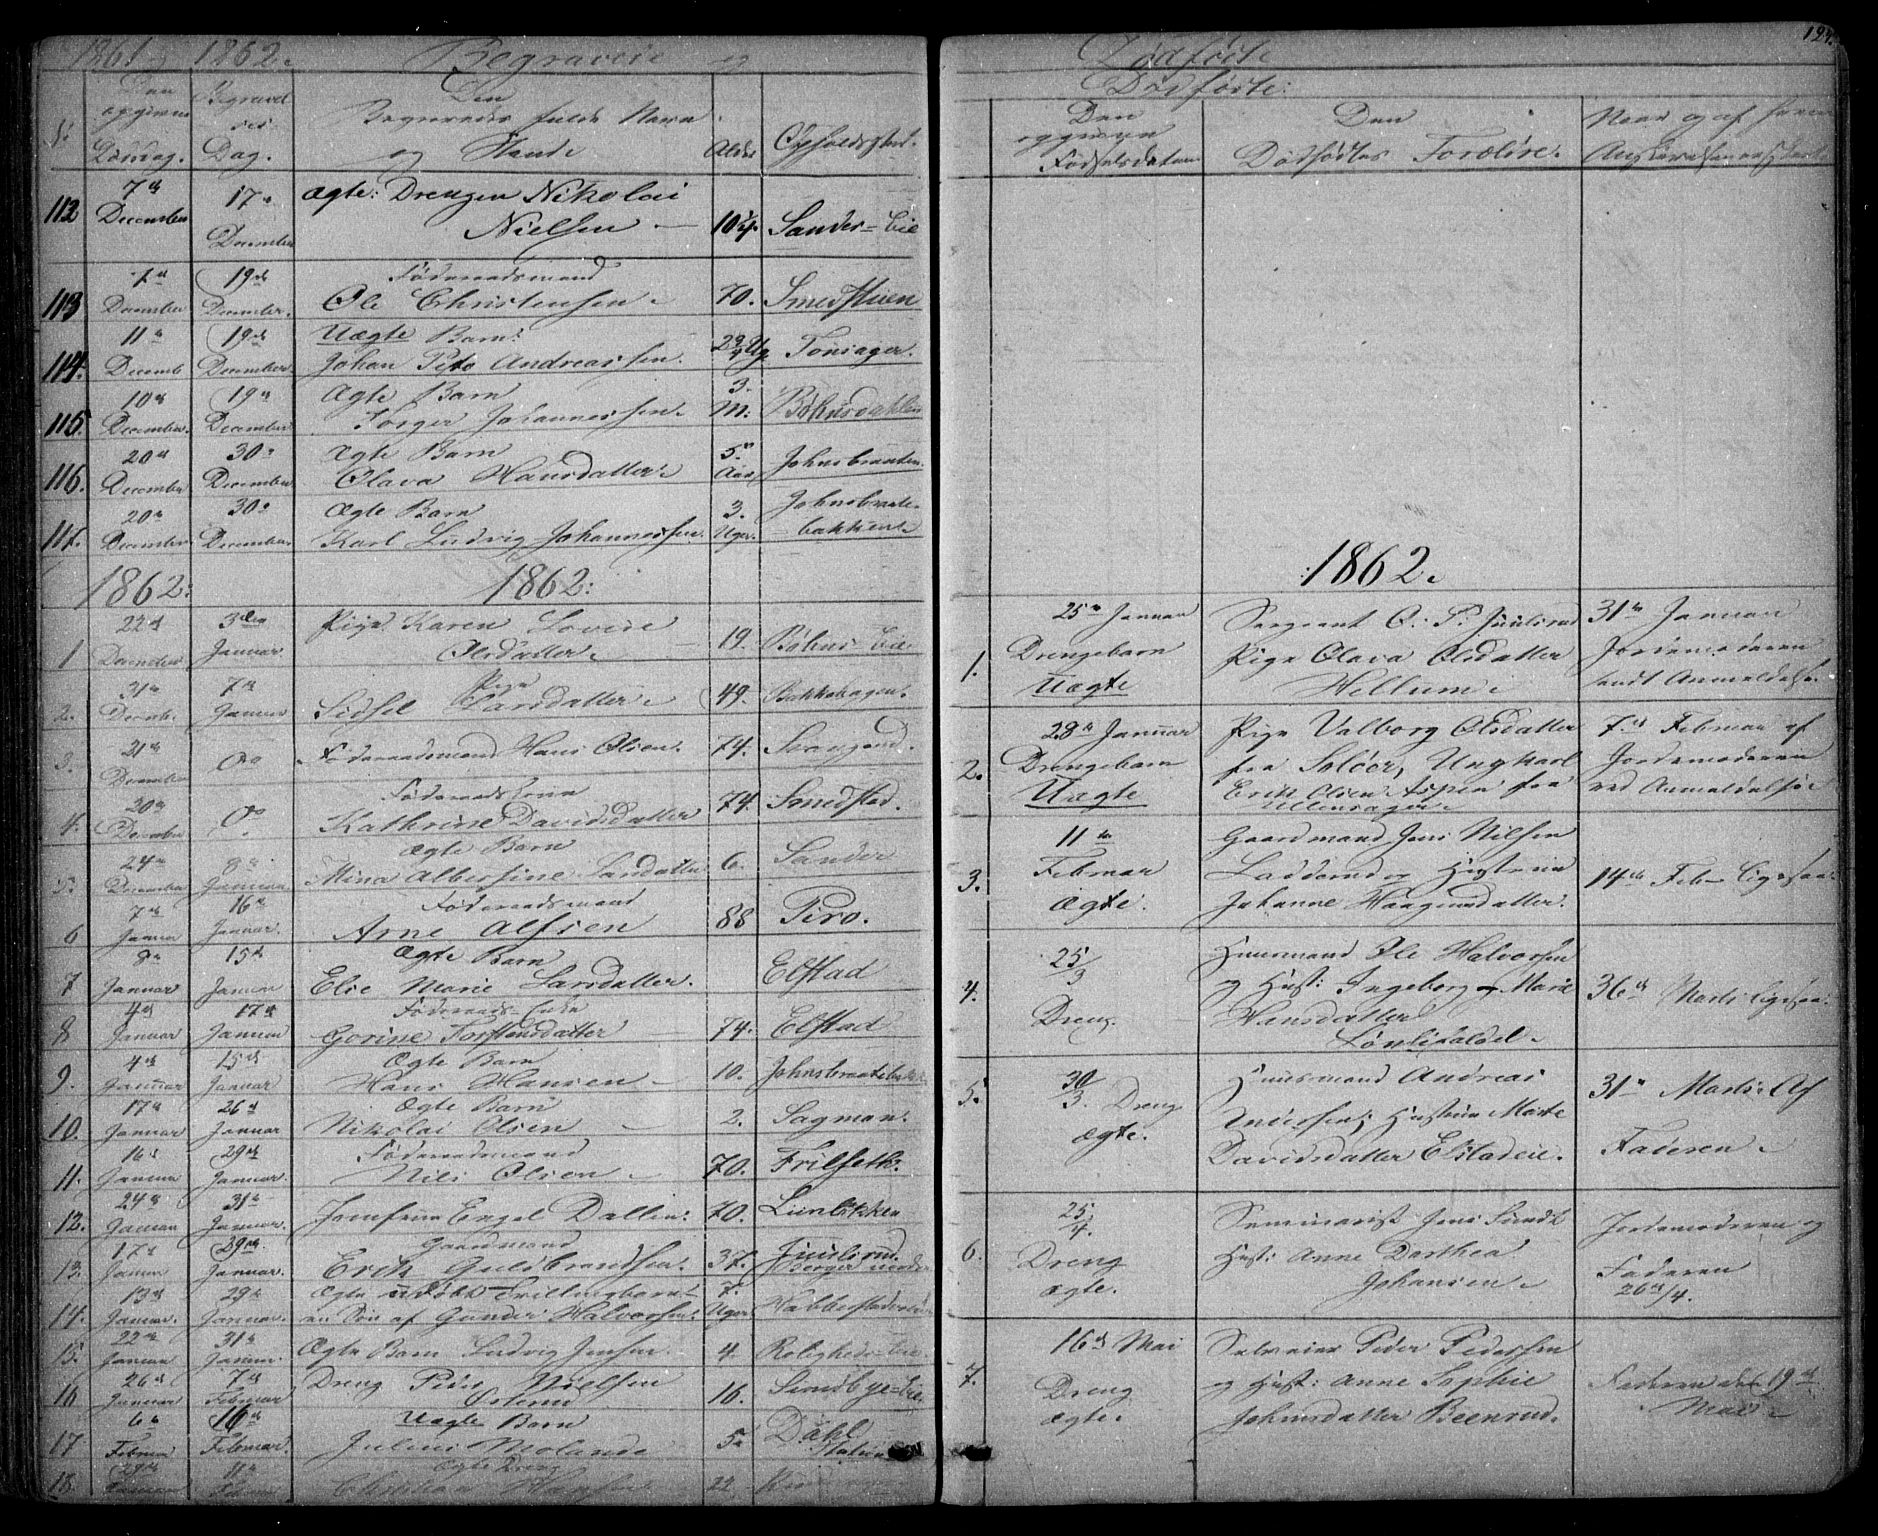 1861 1862. Begravede og
No. Den opgivne Dødsdag. Begravelses Dag. Den Begravedes fulde Navn og Stand Alder Opholdssted.
112 7de December 17de December Ægte: Drengen Nikolai
Nielsen 10¼. Sander-Eie
113 7de December 19de December. Føderaadsmand
Ole Christensen. 70. Smedstuen
114. 11te December 19de December Uægte Barn:
Johan Andreassen. Ug. Tonsager.
115. 10de December. 19de December Ægte Barn
Torger Johannessen. 3. M: Bøhnsdahlen
116. 20de December 30te December Ægte Barn
Olava Hansdatter. 5. Aar Johnsbraaten.
117. 20de December 30te December. Ægte Barn
Karl Ludvig Johannessen. 3. Uger. Johnsbraate-
bakken.
1862: 1862:
1 22de December 3die Januar. Pige Karen Lovise
Olsdatter. 19. Bøhns Eie
2. 31te Decemb. 7de Januar Pige
Sidsel Larsdatter. 49. Bakkehagen.
3. 21de December Do Føderaadsmand Hans Olsen. 74.
4. 30te December Do. Føderaadskone
Kathrine Davidsdatter 74. Smedstad.
5. 24de December 8de Januar Ægte Barn
Mina Albertine Larsdatter 6. Sander
6 7de Januar 16de Januar. Føderaadsmand
Arne Alfsen 88 Piro.
7 8de Januar 15de Januar Ægte Barn
Elise Marie Larsdatter. Elstad
8 4de Januar 17de Januar Føderaads-Enke
Gorine Torstensdatter 74. Elstad
9. 4de Januar 15de Januar Ægte Barn
Hans Hansen 10. Johnsbraatebakk
10. 17de Januar 26de Januar Ægte Barn
Nikolai Olsen 2. Sagmoen.
11. 16de Januar 29de Januar. Føderaadsmand
Nils Olsen 70. Frilseth.
12. 24de Januar 31te Januar. Jomfrue Engel Dallin: 70. Lunbekken
13. 17de Januar 29de Januar. Gaardmand
Erik Guldbrandsen. 37. Juulsrud
14. 13de Januar. 29de Januar. Ægte udøbt Trillingbarn
en Søn af Gunder Halvorsen. 7. Uger
15. 22de Januar 31te Januar. Ægte Barn Ludvig Jensen. 4. Roligheds Eie
16 26de Januar 7de Februar Dreng Peter Nielsen
16. Sundbye-Eie
17 6te Februar 16de Februar. Uægte Barn
Julius 5. Dahl
18. Januar Ægte Dreng
Christian Hansen 22.
124.
Dødfødte
Dødfødte:
Den opgivne Fødselsdatum Den Dødfødtes Forældre. Naar og af hvem
1862.
1. 25de Januar Sergeant O. P. Juulsrud 31te Januar
Drengebarn Pige Olava Olsdatter Jordemoderen
Uægte Hellum. sendt Anmeldelse.
2. 28de Januar Pige Valborg Olsdatter 7de Februar af
Drengebarn fra Soløer, Ungkarl Jordemoderen
Uægte Erik Olsen Aspen fra ved Anmeldelse
Ullensager.
3. 11te Gaardmand Jens Nilsen
Februar Ladderud og Hustrue 14de Feb. Ligesaa
Ægte. Johanne Haagensdatter.
4. 25/3 Huusmand Ole Halvorsen
og Hust: Ingeborg Marie 36te Marts Ligesaa.
Dreng. Hansdatter
5. 30/3. Dreng Huusmand Andreas 31te Marts. Af
ægte. Hustrue Marte
Davidsdatter Elstadeie. Faderen.
6. 25/4. Seminarist Jens Sundt Jordemoderen og
Dreng Hust: Anne Dorthea Faderen
ægte. Johansen. 26de/4.
7. 16de Mai Selveier Peder Pedersen
Dreng og Hust: Anne Sophie Faderen den 19de
ægte. Johnsdatter Beenrud. Mai.